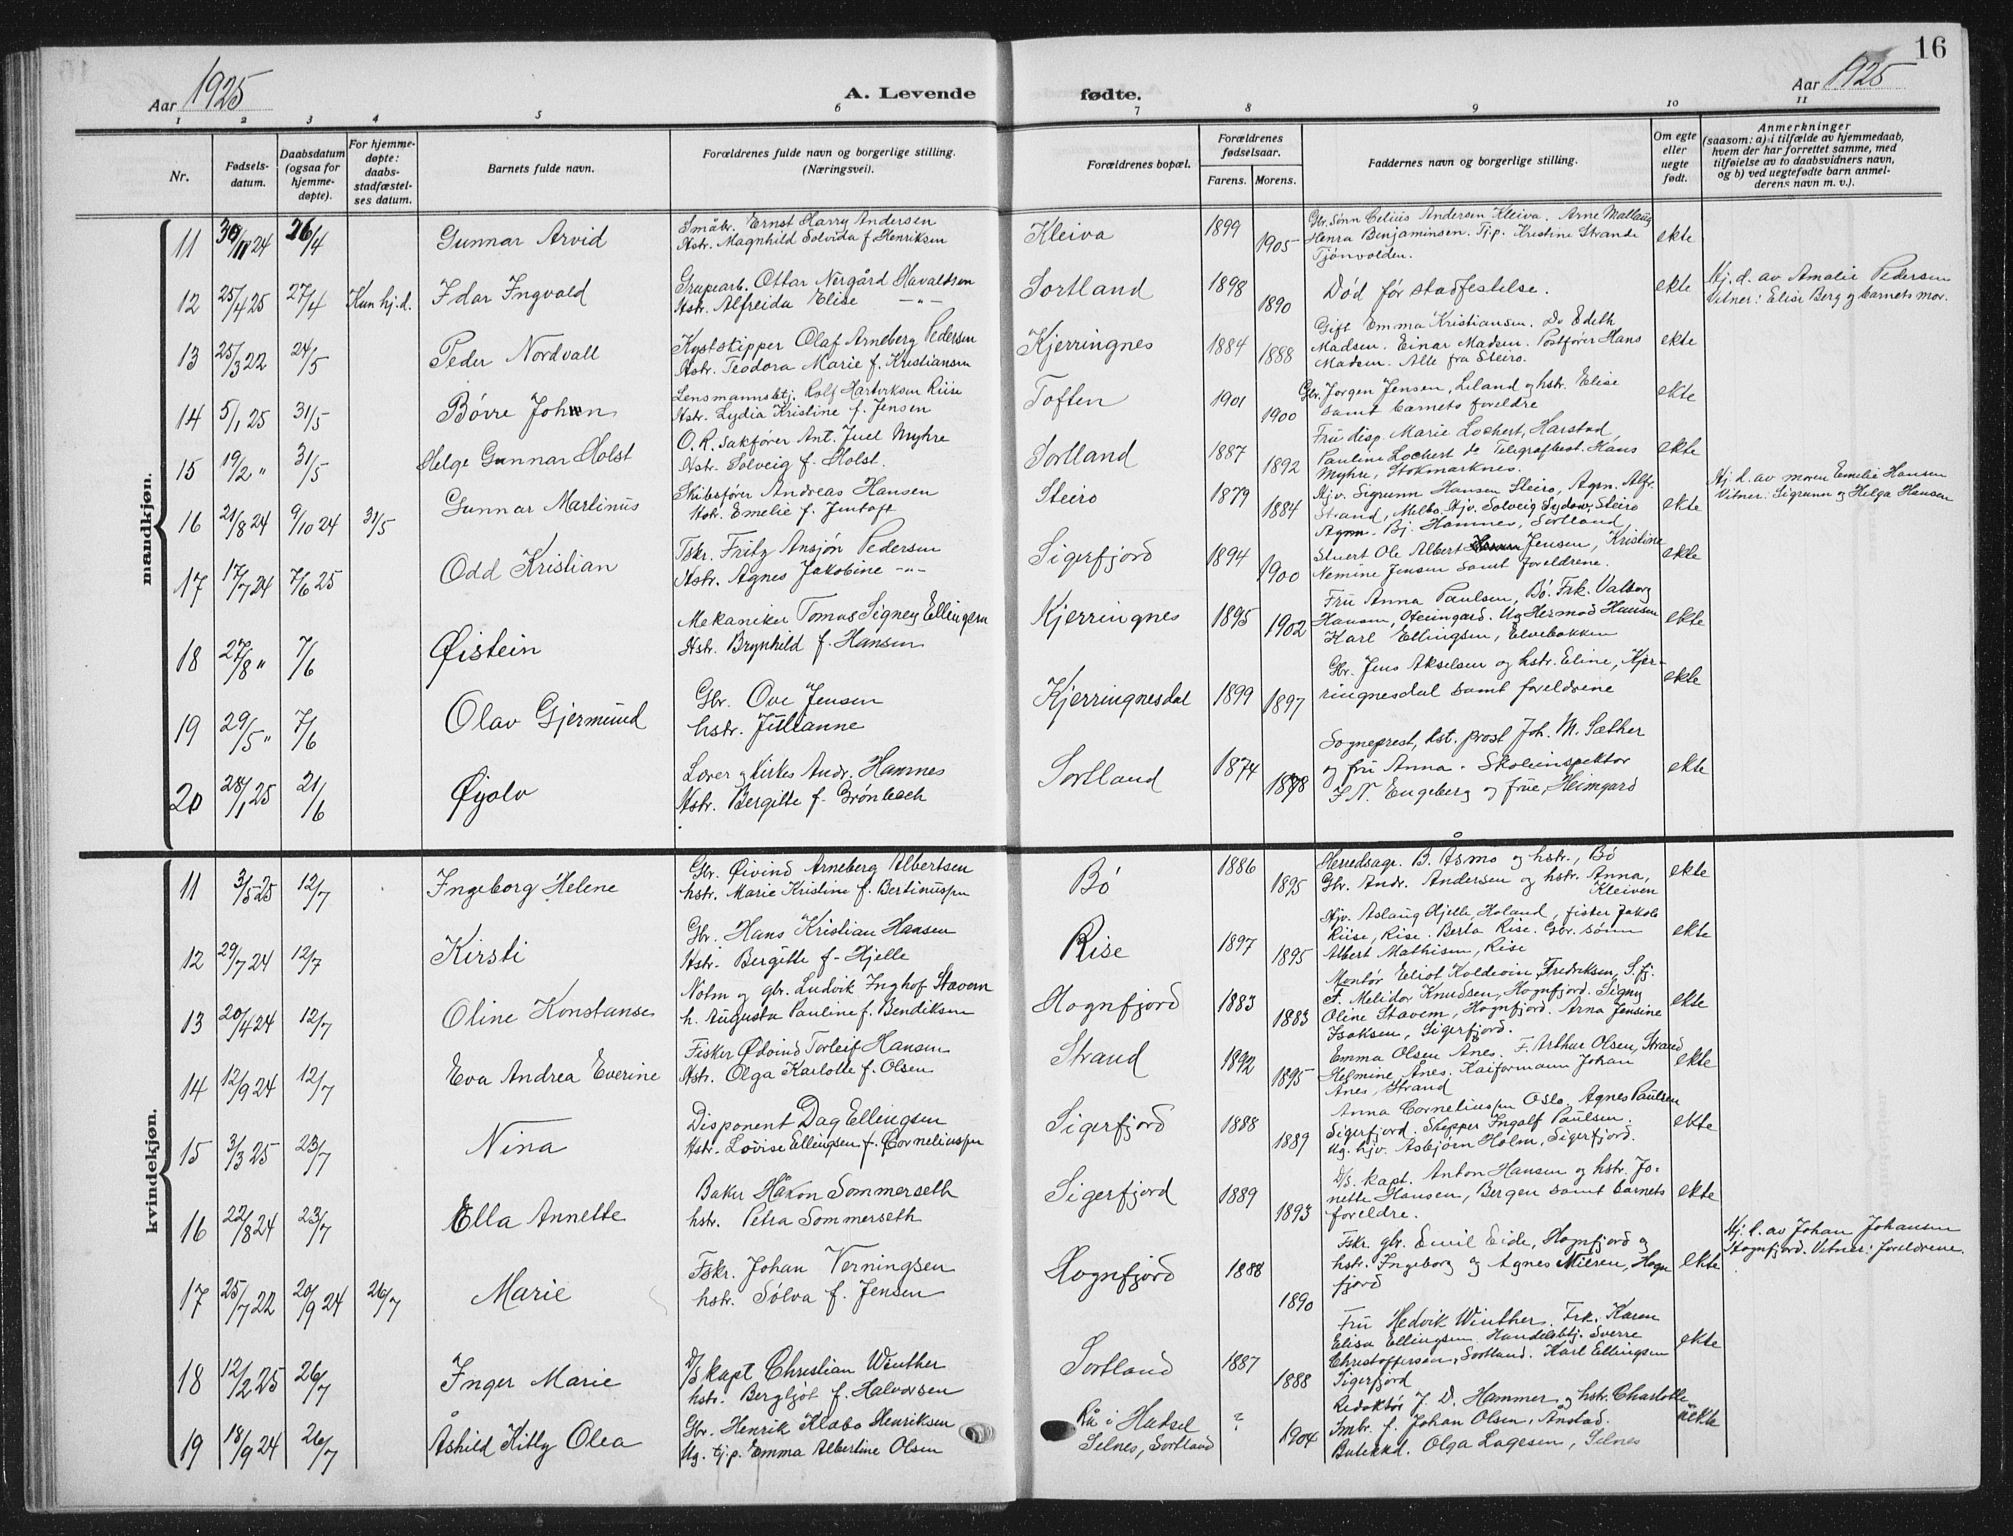 16
Aar 1925
A. Levende fødte.
Aar 1925
1 2 3 4 5 6 7 8 9 10 11
Nr.
Fødsels-
datum.
Daabsdatum
(ogsaa for
hjemme-
døpte).
For hjemme-
døpte:
daabs-
stadfæstel-
ses datum.
Barnets fulde navn.
Forældrenes fulde navn og borgerlige stilling.
(Næringsvei).
Forældrenes bopæl.
Forældrenes
fødselsaar.
Farens. Morens.
Faddernes navn og borgerlige stilling.
Om egte
eller
uegte
født.
Anmerkninger
(saasom: a) i tilfælde av hjemmedaab,
hvem der har forrettet samme, med
tilføielse av to daabsvidners navn,
og b) ved uegtefødte barn anmel-
derens navn m. v.).
mandkjøn.
11 30/11 24 26/4 Gunnar Arvid
Småbr. Ernst Harry Andersen
Hstr. Magnhild Solvida f. Henriksen
Kleiva 1899 1905
Gbr. Sønn Celius Andersen Kleiva. Arne
Henra Benjaminsen. Tj.p. Kristine Strande
Tjønvolden.
ekte
12 25/4 25 27/4 Kun hj.d. Idar Ingvald
Grupearb. Ottar Nergård Havaldsen
Hstr. Alfreida Elise -"-
Sortland 1898 1890
Død før stadfestelse.
ekte
Hj. d. av Amalie Pedersen
Vitner: Elise Berg og barnets mor.
13 25/3 22 24/5 Peder Nordvall
Kystskipper Olaf Arneberg Pedersen
Hstr. Teodora Marie f. Kristiansen
Kjerringnes 1884 1888
Gift Emma Kristiansen. Do Edith
Madsen. Einar Madsen. Postfører Hans
Madsen. Alle fra Steiro.
ekte
14 5/1 25 31/5 Børre Johan
Lensmannsbtj. Rolf Hartviksen Riise
Hstr. Lydia Kristine f. Jensen
Toften 1901 1900
Gbr. Jørgen Jensen, Liland og hstr. Elise
samt barnets foreldre
ekte
15 19/2 " 31/5 Helge Gunnar Holst
O.R. Sakfører Ant. Juel Myhre
Hstr. Solveig f. Holst.
Sortland 1887 1892
Fru disp. Marie Lochert, Harstad
Pauline Lochert do Telegrafbest. Hans
Myhre, Stokmarknes.
ekte
16 21/8 24 9/10 24 31/5 Gunnar Martinus
Skibsfører Andreas Hansen
Hstr. Emelie f. Jentoft
Steiro 1879 1884
Hjv. Sigrunn Hansen Steiro, Agn. Alfr.
Strand, Melbo. Hjv. Solveig Sydow, Steiro
Agnn. Bj. Hamnes, Sortland
ekte
Hj. d. av moren Emelie Hansen
Vitner: Sigrunn og Helga Hansen
17 17/7 24 7/6 25 Odd Kristian
Fskr. Fritz Ansjøn Pedersen
Hstr. Agnes Jakobine -"-
Sigerfjord 1894 1900
Stuert Ole Albert Jensen, Kristine
Nemine Jensen samt foreldrene.
ekte
18 27/8 " 7/6 Øistein
Mekaniker Tomas Signey Ellingsen
Hstr. Brynhild f. Hansen
Kjerringnes 1895 1902
Fru Anna Paulsen, Bö. Frk. Valborg
Hansen, Steingard. Ug Hermod Hansen
Karl Ellingsen, Elvebakken
ekte
19 29/5 " 7/6 Olav Gjermund
Gbr. Ove Jensen
hstr. Julianne
Kjerringnesdal 1899 1897
Gbr. Jens Akselsen og hstr. Eline, Kjer-
ringnesdal samt foreldrene
ekte
20 28/1 25 21/6 Øyolv
Lærer og Kirkes. Andr. Hamnes
Hstr. Bergitte f. Grønbech
Sortland 1874 1878
Sogneprest, kst. prost Joh. M. Sæther
og fru Anna. Skoleinspektør
F. N. Engeberg og frue, Heimgard
ekte
kvindekjøn.
11 3/5 25 12/7 Ingeborg Helene
Gbr. Øivind Arneberg Albertsen
hstr. Marie Kristine f. Bertinussen
Bö 1886 1895
Herredsagr. B. Åsmo og hstr., Bö
Gbr. Andr. Andersen og hstr. Anna,
Kleiven
ekte
12 29/7 24 12/7 Kirsti
Gbr. Hans Kristian Hansen
Hstr. Bergitte f. Hjelle
Rise 1897 1895
Hjv. Aslaug Hjelle, Holand, fisker Jakob
Riise, Rise. Berta Rise. Gbr. sønn
Albert Mathisen, Rise
ekte
13 20/4 24 12/7 Oline Konstanse
Notm og gbr. Ludvik Inghof Stavem
h. Augusta Pauline f. Bendiksen
Hognfjord 1883 1883
Montør Eliot Koldevin Fredriksen, S.fj.
F. Melidor Knudsen, Hognfjord. Signy
Oline Stavem, Hognfjord. Arna Jensine
Isaksen, Sigerfjord.
ekte
14 12/9 24 12/7 Eva Andrea Everine
Fisker Ødvind Torleif Hansen
Hstr. Olga Karlotte f. Olsen
Strand 1892 1895
Emma Olsen Anes. F. Arthur Olsen, Strand
Helmine Anes. Kaiformann Johan
Anes, Strand
ekte
15 3/3 25 23/7 Nina
Disponent Dag Ellingsen
Hstr. Lovise Ellingsen f. Corneliussen
Sigerfjord 1888 1889
Anna Corneliussen Oslo, Agnes Paulsen
Sigerfjord. Skipper Ingolf Paulsen.
Ug. hjv. Asbjørn Holm, Sigerfjord.
ekte
16 22/8 24 23/7 Ella Annette
Baker Håkon Sommerseth
hstr. Petra Sommerseth
Sigerfjord 1889 1893
D/s. kapt. Anton Hansen og hstr. Jo-
nette Hansen, Bergen samt barnets
foreldre.
ekte
17 25/7 22 20/9 24 26/7 Marie
Fskr. Johan Verningsen
hstr. Sølva f. Jensen
Hognfjord 1888 1890
Fskr. gbr. Emil Eide, Hognfjord og
hstr. Ingeborg og Agnes Nilsen, Hogn
fjord
ekte
Hj. d. av Johan Johansen
Hognfjord. Vitner: foreldrene.
18 12/2 25 26/7 Inger Marie
D/s kapt Christian Winther
hstr. Bergljot f. Halvorsen
Sortland 1887 1888
Fru Hedvik Winther. Frk. Karen
Elisa Ellingsen. Handelsbtj. Sverre
Christoffersen, Sortland. Karl Ellingsen
Sigerfjord
ekte
19 18/9 24 26/7 Åshild Kitty Olea
Gbr. Henrik Klabo Henriksen
Ug. tj.p. Emma Albertine Olsen
Rå i Hadsel
Selnes, Sortland
? 1904
Redaktør J. D. Hammer og hstr. Charlotte
Småbr. f. Johan Olsen, Ånstad.
Butekkd. Olga Lagesen, Selnes
uekte